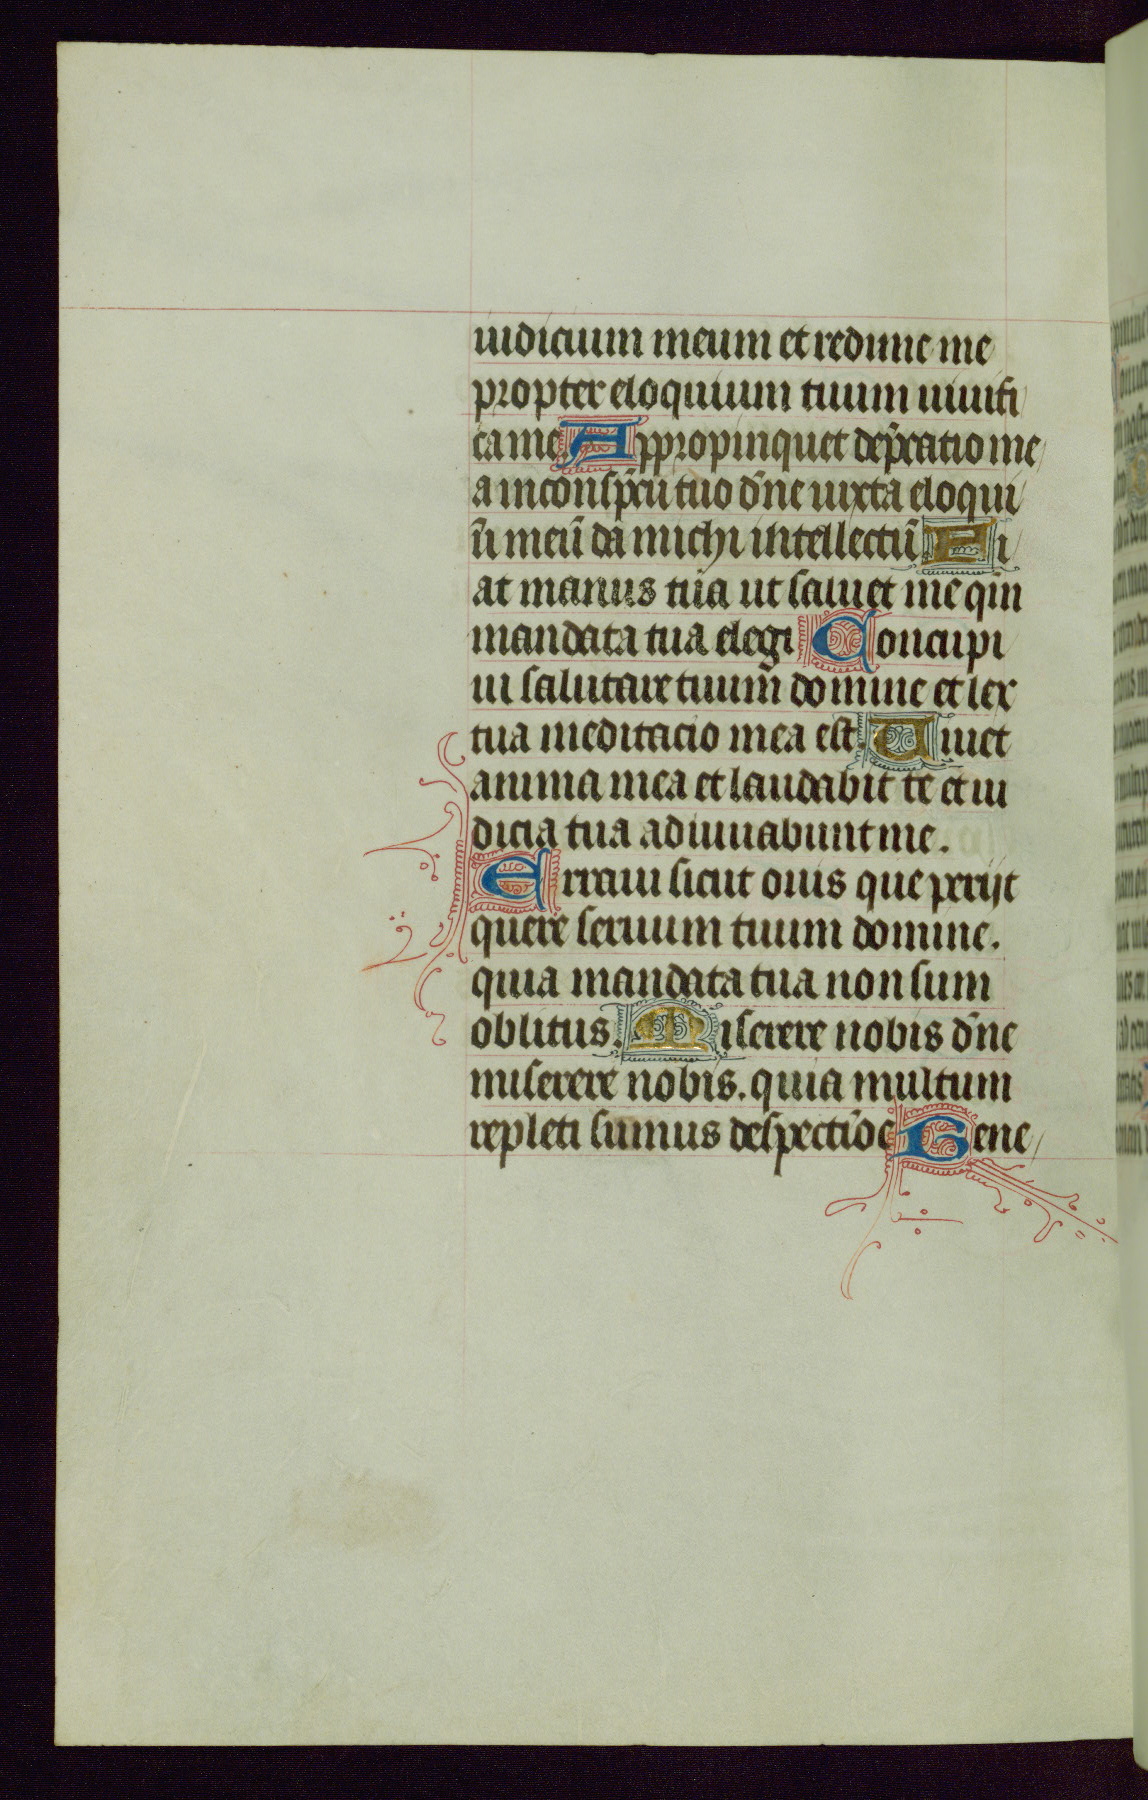 iudicium meum et redime me
propter eloquium tuum uiuifi
ca me. Appropinquet dep̄catio me
a in consp̄cu tuo dn̄e iuxta eloqui
ū meū da michi intellectū Fi
at manus tua ut saluet me qm̄
mandata tua elegi Concupi
ui salutare tuum domine et lex
tua meditacio mea est. Uiuet
anima mea et laudabit te et iu
dicia tua adiuuabunt me.
Erraui sicut ouis que perijt
quere seruum tuum domine.
quia mandata tua non sum
oblitus. Miserere nobis dn̄e
miserere nobis. quia multum
repleti sumus despectiōe Gene